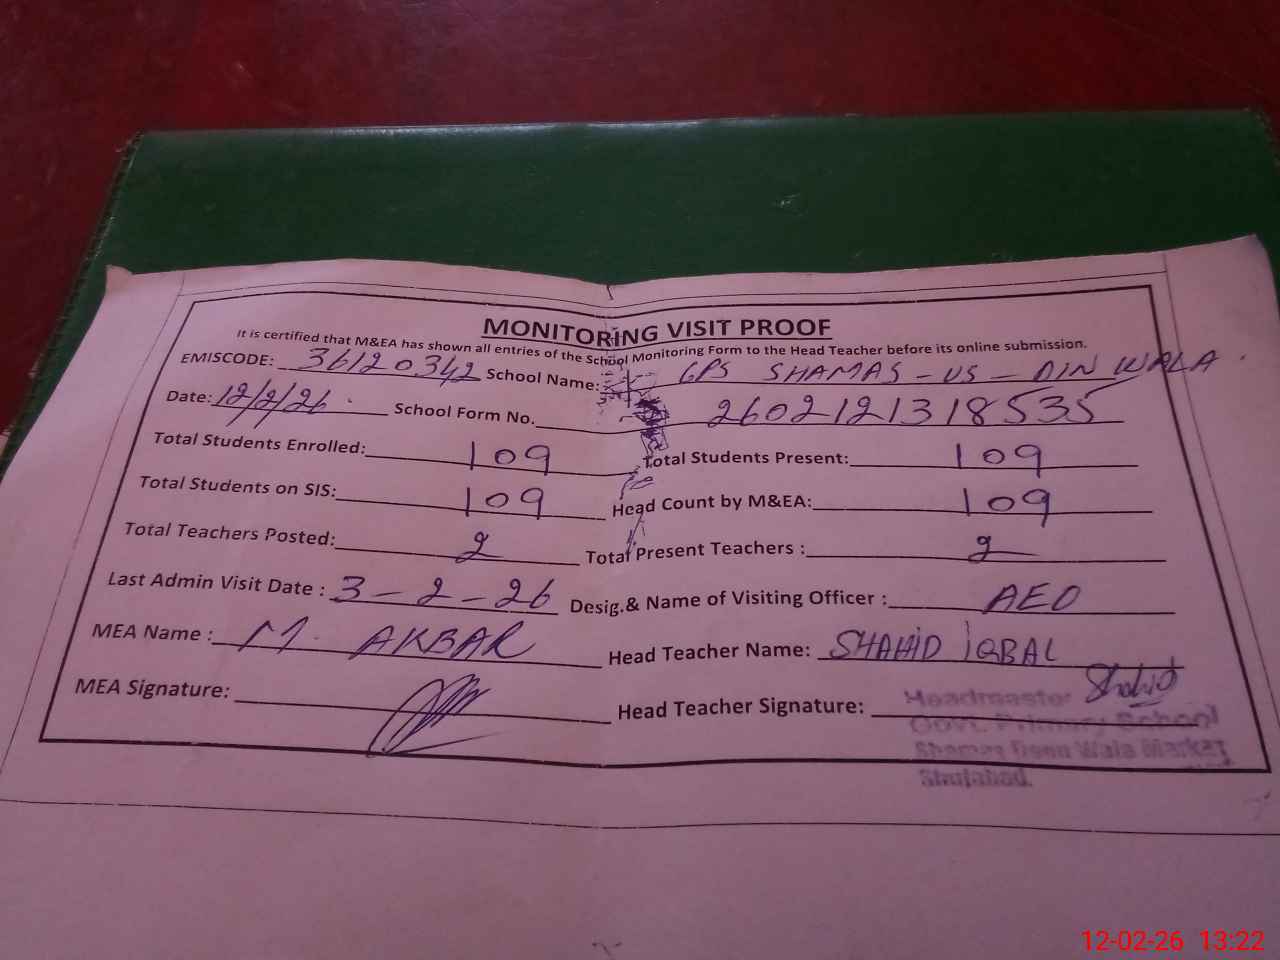 MONITORING VISIT PROOF
It is certified that M&EA has shown all entries of the School Monitoring Form to the Head Teacher before its online submission.
EMISCODE: 36120342 School Name: GPS SHAMAS-US-DIN WALA.
Date: 12/2/26 School Form No. 2602121318535
Total Students Enrolled: 109 Total Students Present: 109
Total Students on SIS: 109 Head Count by M&EA: 109
Total Teachers Posted: 2 Total Present Teachers : 2
Last Admin Visit Date : 3-2-26 Desig.& Name of Visiting Officer : AEO
MEA Name : M. AKBAR Head Teacher Name: SHAHID IQBAL
MEA Signature: Head Teacher Signature: Shahid
Headmaster
Govt. Primary School
Shamas Deen Wala Market
Shujabad.
12-02-26 13:22